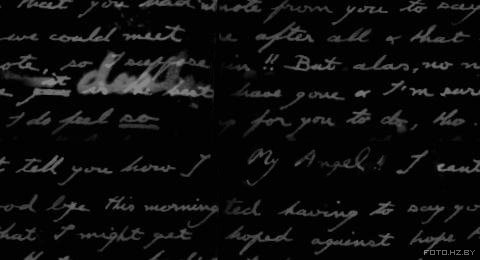 that you had note from you to say
we could meet after all & that
note, so I suppose !! But alas, no n
it is the best have gone & I'm sure
I do feel so for you to do, tho.
t tell you how I My Angel !! I cant
od bye this morning ted having to say yo
that I might get hoped against hope
FOTO.HZ.BY